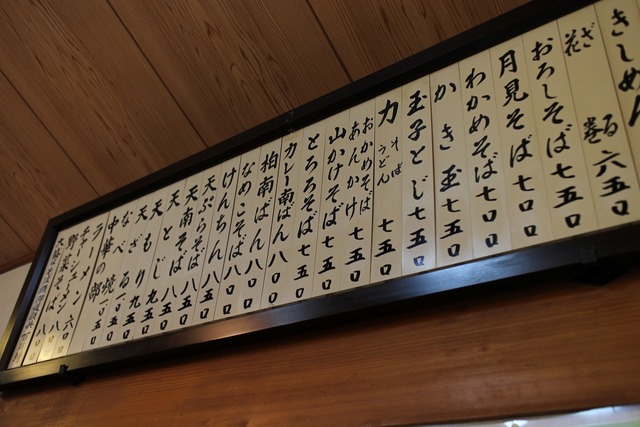 きしめん
ざる
花巻 六五〇
おろしそば 七五〇
月見そば 七〇〇
わかめそば 七〇〇
かき玉 七五〇
玉子とじ 七五〇
力 そば うどん 七五〇
おかめそば
あんかけ 七五〇
山かけそば 七五〇
とろろそば 七五〇
カレー南ばん 八〇〇
柏南ばん 八〇〇
なめこそば 八〇〇
けんちん 八〇〇
天ぷらそば 八五〇
天南そば 八五〇
天とじ 八五〇
天もり 九五〇
天ざる 九五〇
なべ焼 一〇五〇
中華の部
ラーメン 六〇〇
チャーシューメン
野菜そば 八〇